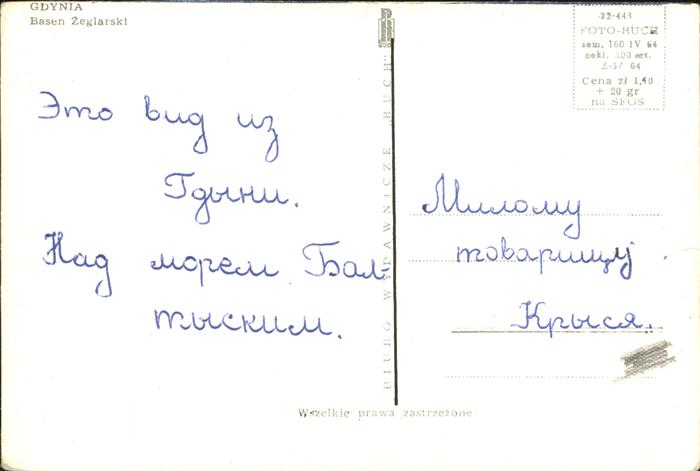 GDYNIA
Basen Żeglarski
Это вид из
Гдыни.
Над морем Бал-
тыским.
BIURO WYDAWNICZE „RUCH"
-22-443
FOTO-RUCH
zam. 160 IV 64
nakł. 500 szt.
Z-57 64
Cena zł 1,40
+ 20 gr
na SFOS
Милому
товарищу.
Крыся.
Wszelkie prawa zastrzeżone